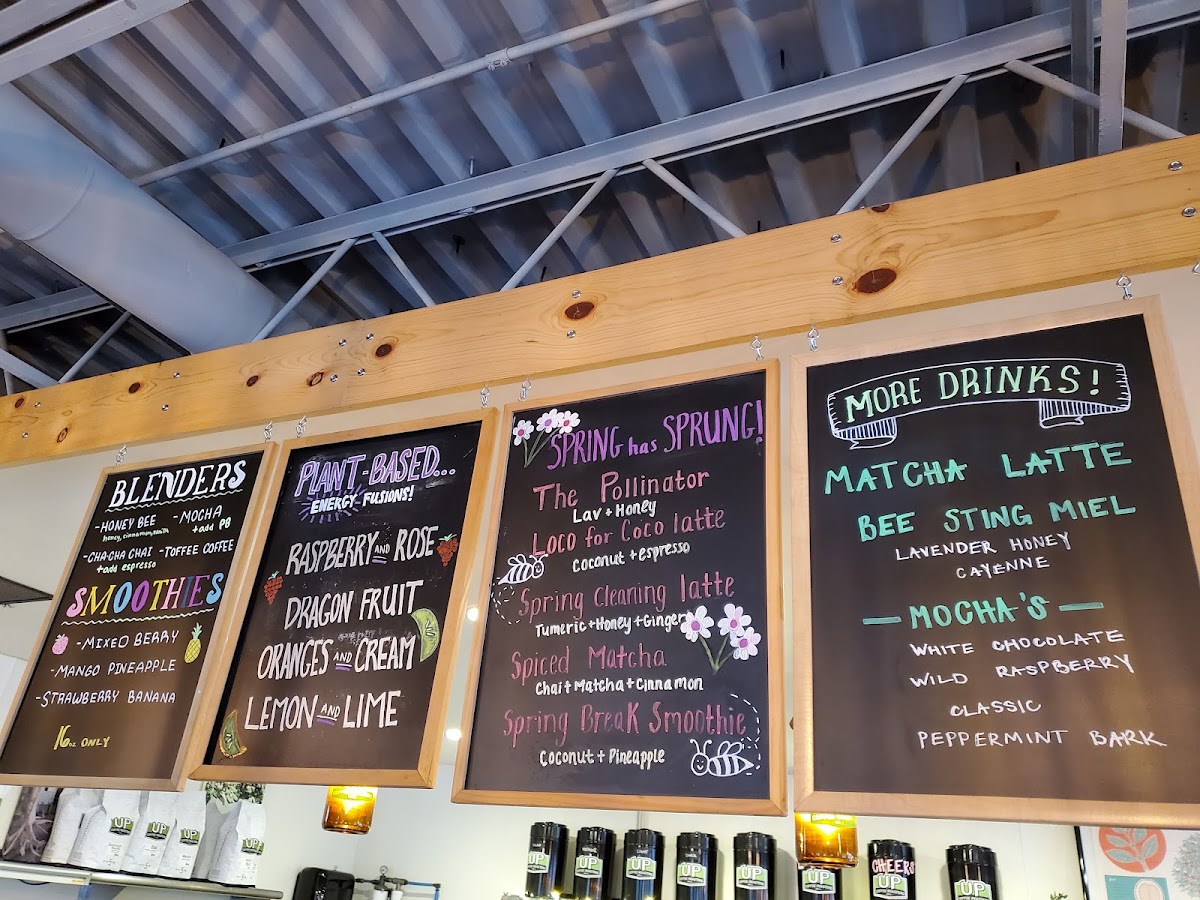 BLENDERS
-HONEY BEE
honey, cinnamon, vanilla
-MOCHA
+add PB
-CHA-CHA CHAI
+add espresso
-TOFFEE COFFEE
SMOOTHIES
-MIXED BERRY
-MANGO PINEAPPLE
-STRAWBERRY BANANA
16oz ONLY
PLANT-BASED...
ENERGY FUSIONS!
RASPBERRY AND ROSE
DRAGON FRUIT
ORANGES AND CREAM
LEMON AND LIME
SPRING has SPRUNG!
The Pollinator
Lav + Honey
Loco for Coco latte
coconut + espresso
Spring Cleaning latte
Tumeric + Honey + Ginger
Spiced Matcha
Chai + Matcha + Cinnamon
Spring Break Smoothie
Coconut + Pineapple
MORE DRINKS!
MATCHA LATTE
BEE STING MIEL
LAVENDER HONEY
CAYENNE
- MOCHA'S -
WHITE CHOCOLATE
WILD RASPBERRY
CLASSIC
PEPPERMINT BARK
UP
UP
UP
UP
UP
UP
UP
UP
UP
UP
CHEERS
UP
UP